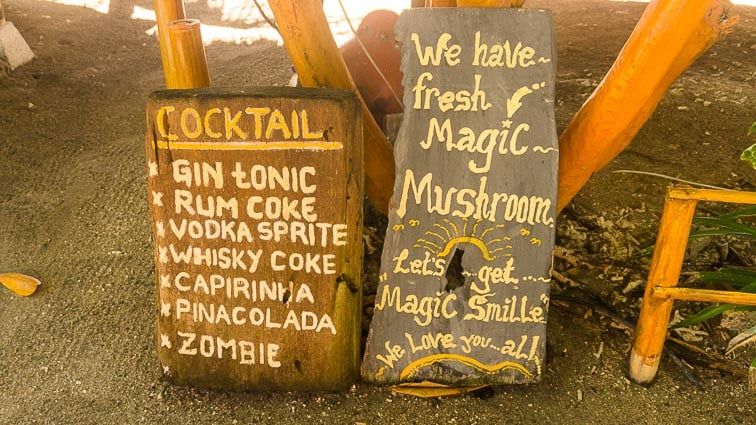 COCKTAIL
GIN tONIC
RUM COKE
VODKA SPRITE
WHISKY COKE
CAPIRINHA
PINACOLADA
ZOMBIE
We have
fresh
Magic
Mushroom
"Let's get....
"Magic Smille"
We Love you...all